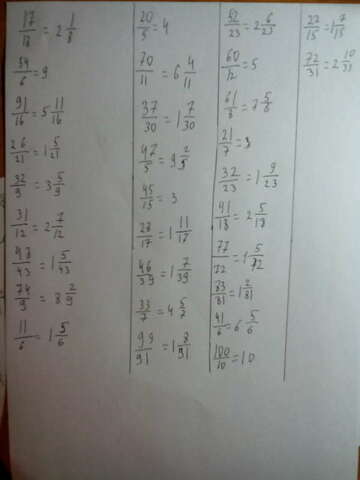 17/8 = 2 1/8
54/6 = 9
91/16 = 5 11/16
26/21 = 1 5/21
32/9 = 3 5/9
31/12 = 2 7/12
48/43 = 1 5/43
74/9 = 8 2/9
11/6 = 1 5/6
20/5 = 4
70/11 = 6 4/11
37/30 = 1 7/30
47/5 = 9 2/5
45/15 = 3
28/17 = 1 11/17
46/39 = 1 7/39
33/7 = 4 5/7
99/91 = 1 8/91
52/23 = 2 6/23
60/12 = 5
61/8 = 7 5/8
21/7 = 3
32/23 = 1 9/23
41/18 = 2 5/18
77/72 = 1 5/72
83/81 = 1 2/81
41/6 = 6 5/6
100/10 = 10
22/15 = 1 7/15
72/31 = 2 10/31